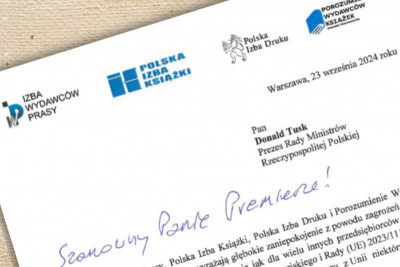 IZBA
WYDAWCÓW
PRASY
POLSKA
IZBA
KSIĄŻKI
Polska
Izba Druku
POROZUMIENIE
WYDAWCÓW
KSIĄŻEK
Warszawa, 23 września 2024 roku
Pan
Donald Tusk
Prezes Rady Ministrów
Rzeczypospolitej Polskiej
Szanowny Panie Premierze!
Polska Izba Książki, Polska Izba Druku i Porozumienie W
yrażają głębokie zaniepokojenie z powodu zagrożeń
jak dla wielu innych przedsiębiorców
skiego i Rady (UE) 2023/11
z Unii niektór